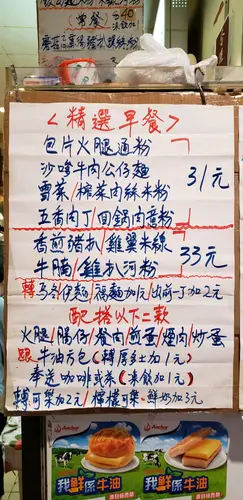 (常餐)
40
<精選早餐>
包片火腿通粉
沙嗲牛肉公仔麵
31元
雪菜/榨菜肉絲米粉
五香肉丁/回鍋肉意粉
香煎豬扒/雞翼米線
33元
牛腩/雞扒河粉
轉烏冬/伊麵/福麵加1元/出前一丁加2元
配搭以下二款
火腿/腸仔/餐肉/煎蛋/煙肉/炒蛋
跟牛油方包(轉厚多士加1元)
奉送咖啡或茶(凍飲加1元)
轉可樂加2元/檸檬可樂/鮮奶加3元
Anchor
我鮮係牛油
Anchor
我鮮係牛油